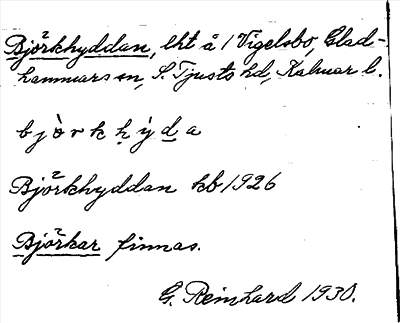 Björkhyddan, lht å 1 Vigelsbo, Glad-
hammars sn, S. Tjusts hd, Kalmar l.
b j ò r k ḥ ý d a
Björkhyddan kb 1926
Björkar finnas.
G. Reinhard 1930.